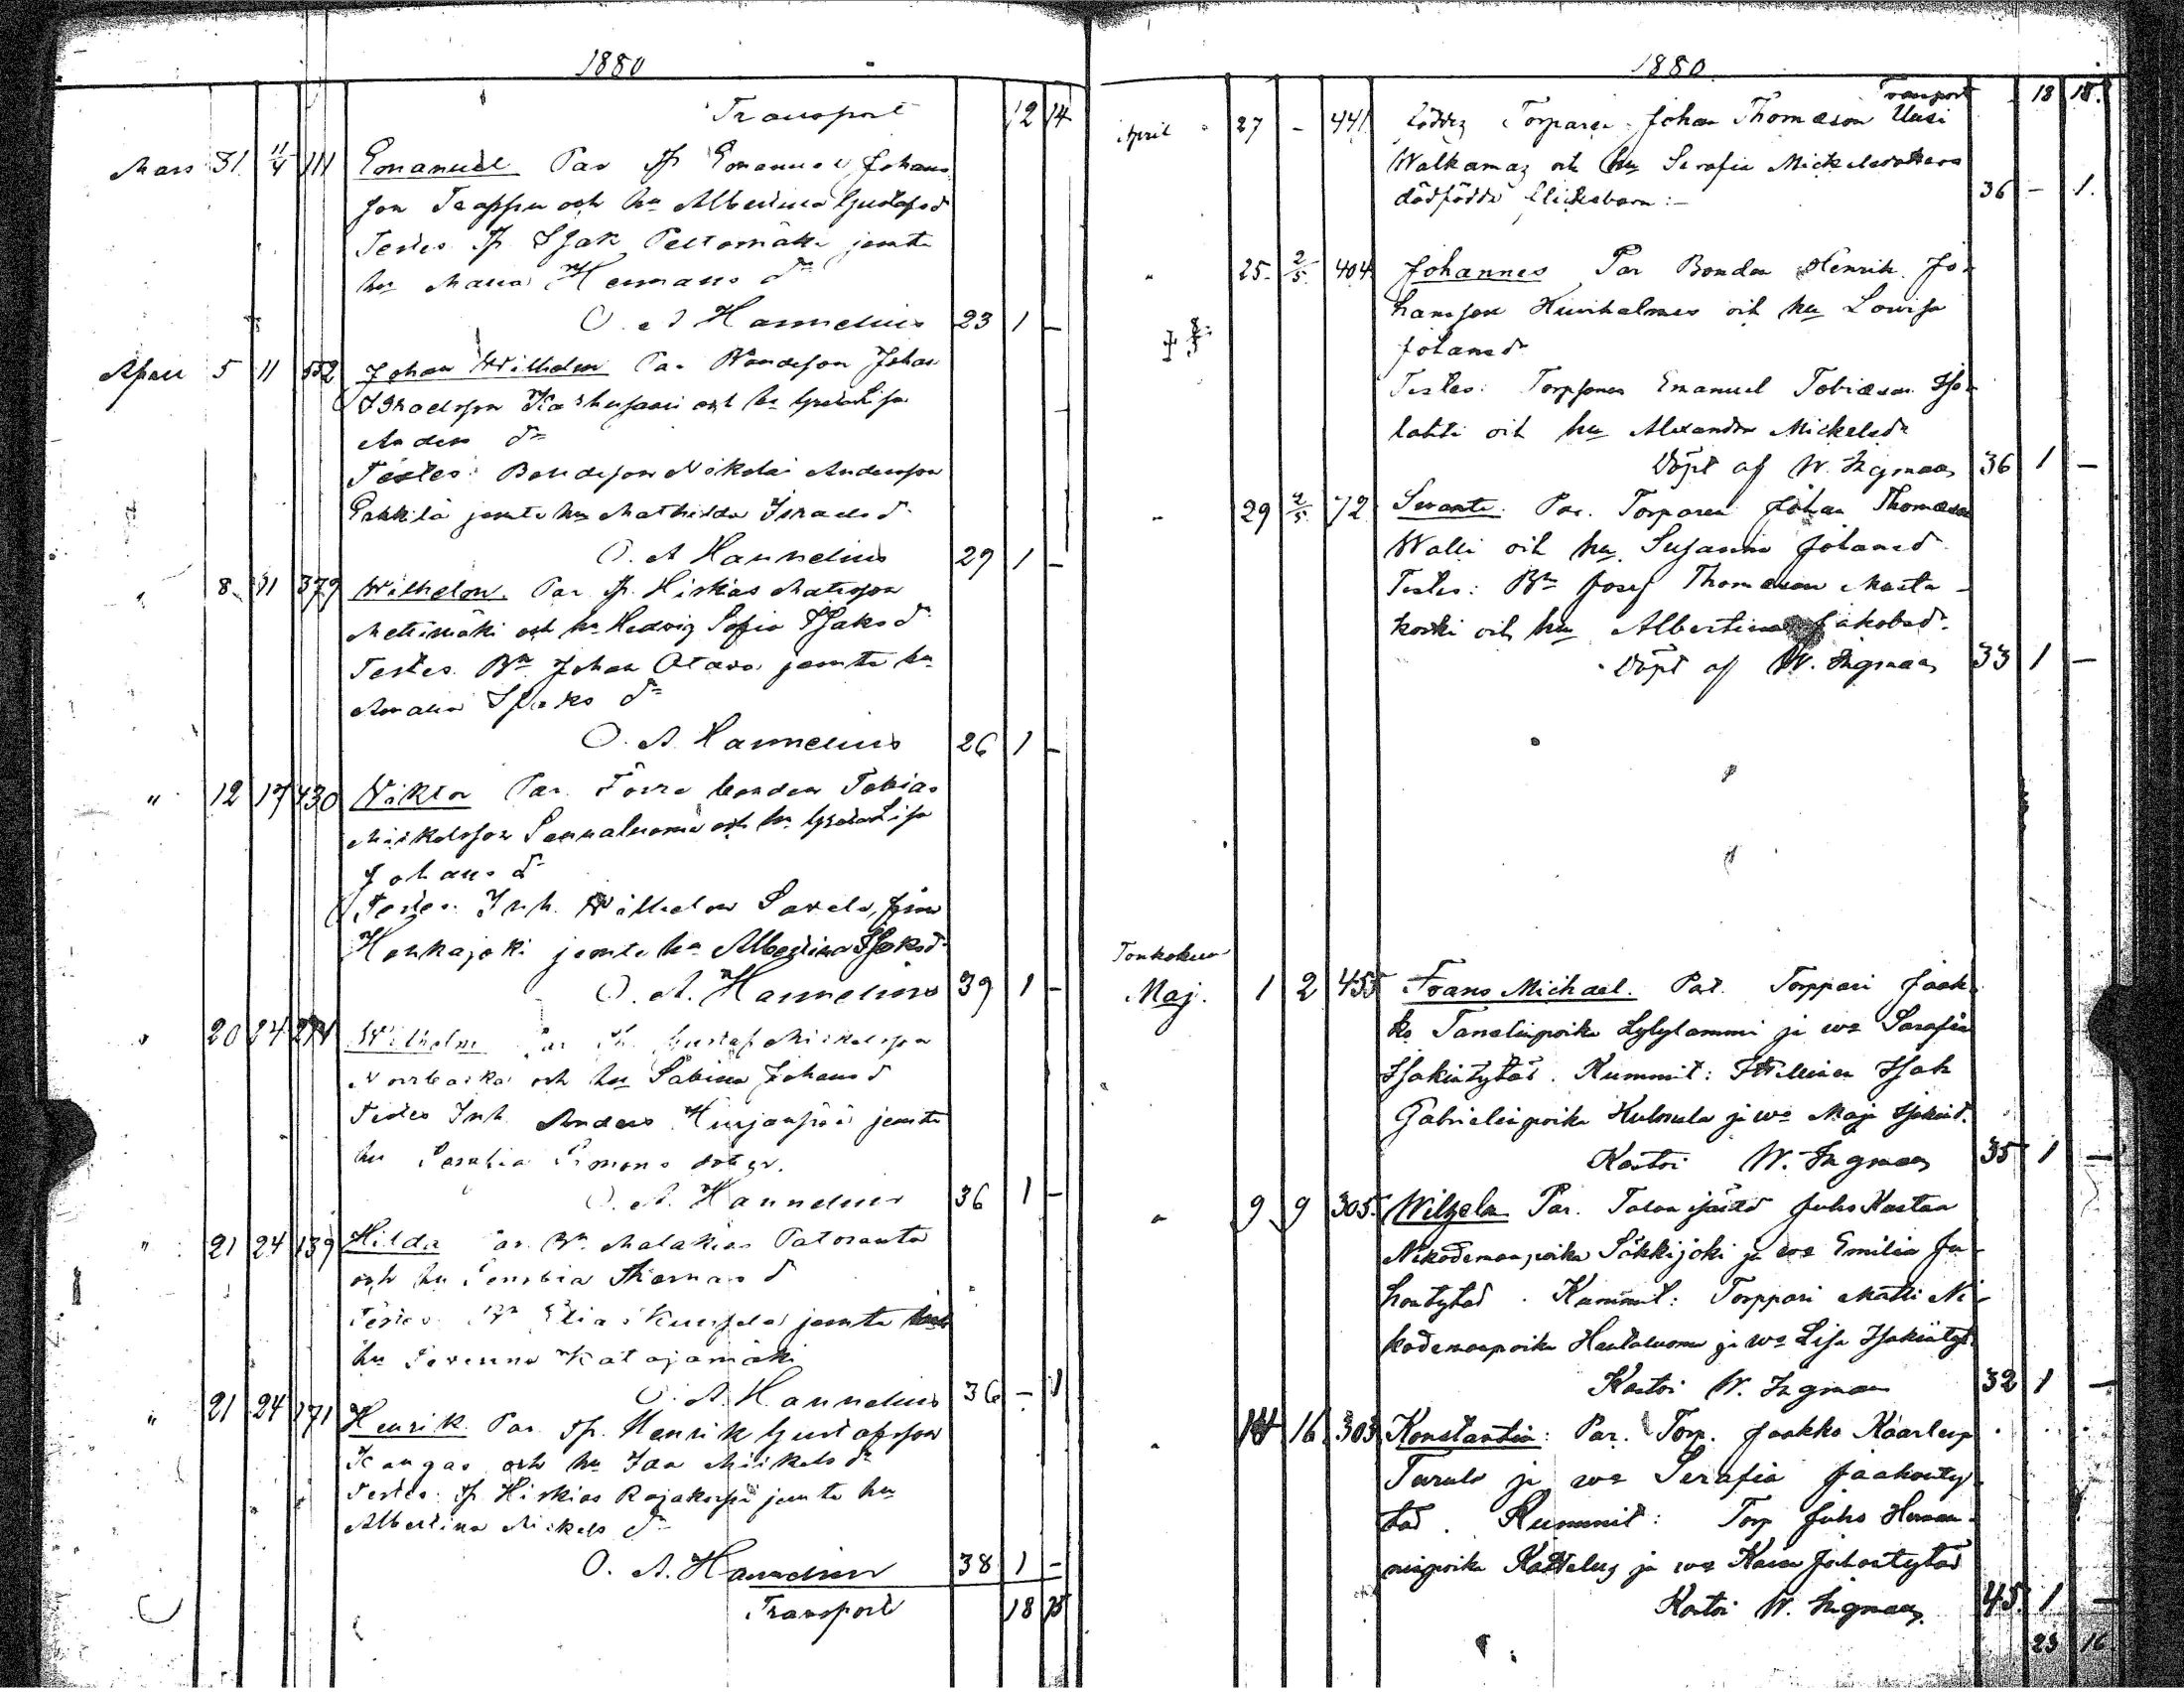 1880
Transport 12 14
Mars 31 11/4 111 Emanuel Par If Emanuel Johans
son och hu Albertina Gustafsd
Testes If Isak Peltomäki jemte
hu Maria Hermans dr
O. A Hannelius 23 1 –
April 5 11 552 Johan Wilhelm Par Bondeson Johan
Israelsson Karhusaari och hu Greta Lisa
Anders dr
Testes: Bondeson Nikolai Andersson
jemte hu Mathilda Israels d
O. A Hannelius 29 1 –
" 8 11 379 Wilhelm. Par If. Hiskias Matsson
Metsämäki och hu Hedvig Sofia Isaks d
Testes. Bn Johan Otava jemte hu
Amalia Isaks dr
O. A. Hannelius 26 1 –
" 12 17 430 Viktor Par. Förre bonden Tobias
Mickelsson och hu Greta Lisa
Johans d
Testes. Inh. Wilhelm Savela, från
Honkajoki jemte hu Albertina Isaksd
O. A. Hannelius 39 1 –
" 20 24 271 Wilhelm Par Gustaf Mickelsson
Norrbacka och hu Sabina Johans d
Testes Inh. Anders Hurjanpää jemte
hu Simons dotter.
O. A. Hannelius 36 1 –
" 21 24 139 Hilda Par. Bn. Malakias Patoranta
och hu Thomas d
Testes. Bn Elias jemte
hu Katajamäki
O. A. Hannelius 36 – 1
" 21 24 171 Henrik. Par If. Henrik Gustafsson
Kangas och hu Ida Mickels dr
Testes: If Hiskias Rajakorpi jemte hu
Albertina Mickels dr
O. A. Hannelius 38 1 –
Transport 18 15
1880
Transport 18 15.
April 27 – 441 Torparen Johan Thomasson Uusi
Walkama och hu Serafia Mickelsdotters
dödfödda flickebarn:– 36 – 1.
" 25 2/5 404 Johannes Par Bonden Henrik Jo-
hansson Kuivkalmes och hu Lovisa
Johansdr
Testes: Torpsonen Emanuel Tobiasson Iso-
lahti och hu Alexandra Mickelsdr
Döpt af W. Ingman 36 1 –
" 29 2/5 72 Svante. Par. Torparen Johan Thomasson
Walli och hu Susanna Johansd
Testes: Bn Josef Thomasson Musta-
koski och hu Albertina Jakobsd.
Döpt af W. Ingman 33 1 –
Toukokuu
Maj. 1 2 455 Frans Michael. Par. Torppari Jaak-
ko Tanelinpoika Lylylammi ja wo Serafia
Isakintytär. Kummit: Itsellinen Isak
Gabrielinpoika Kulmala ja wo Maja Isakind.
Kastoi W. Ingman 35 1 –
" 9 9 305. Wilhelm Par. Talon isäntä Juho Kustaa
Nikodemuspoika Säkkijoki ja wo Emilia Ju-
hontytär. Kummit: Torppari Matti Ni-
kodemuspoika Hautaluoma ja wo Lisa Isakintyt.
Kastoi W. Ingman 32 1 –
" 14 16 303 Konstantin: Par. Torp. Jaakko Kaarlenp
ja wo Serafia Jaakonty-
tär. Kummit: Torp Juho Herman-
ninpoika Kattelus ja wo Kaisa Juhontytär
Kastoi W. Ingman. 45. 1 –
23 16